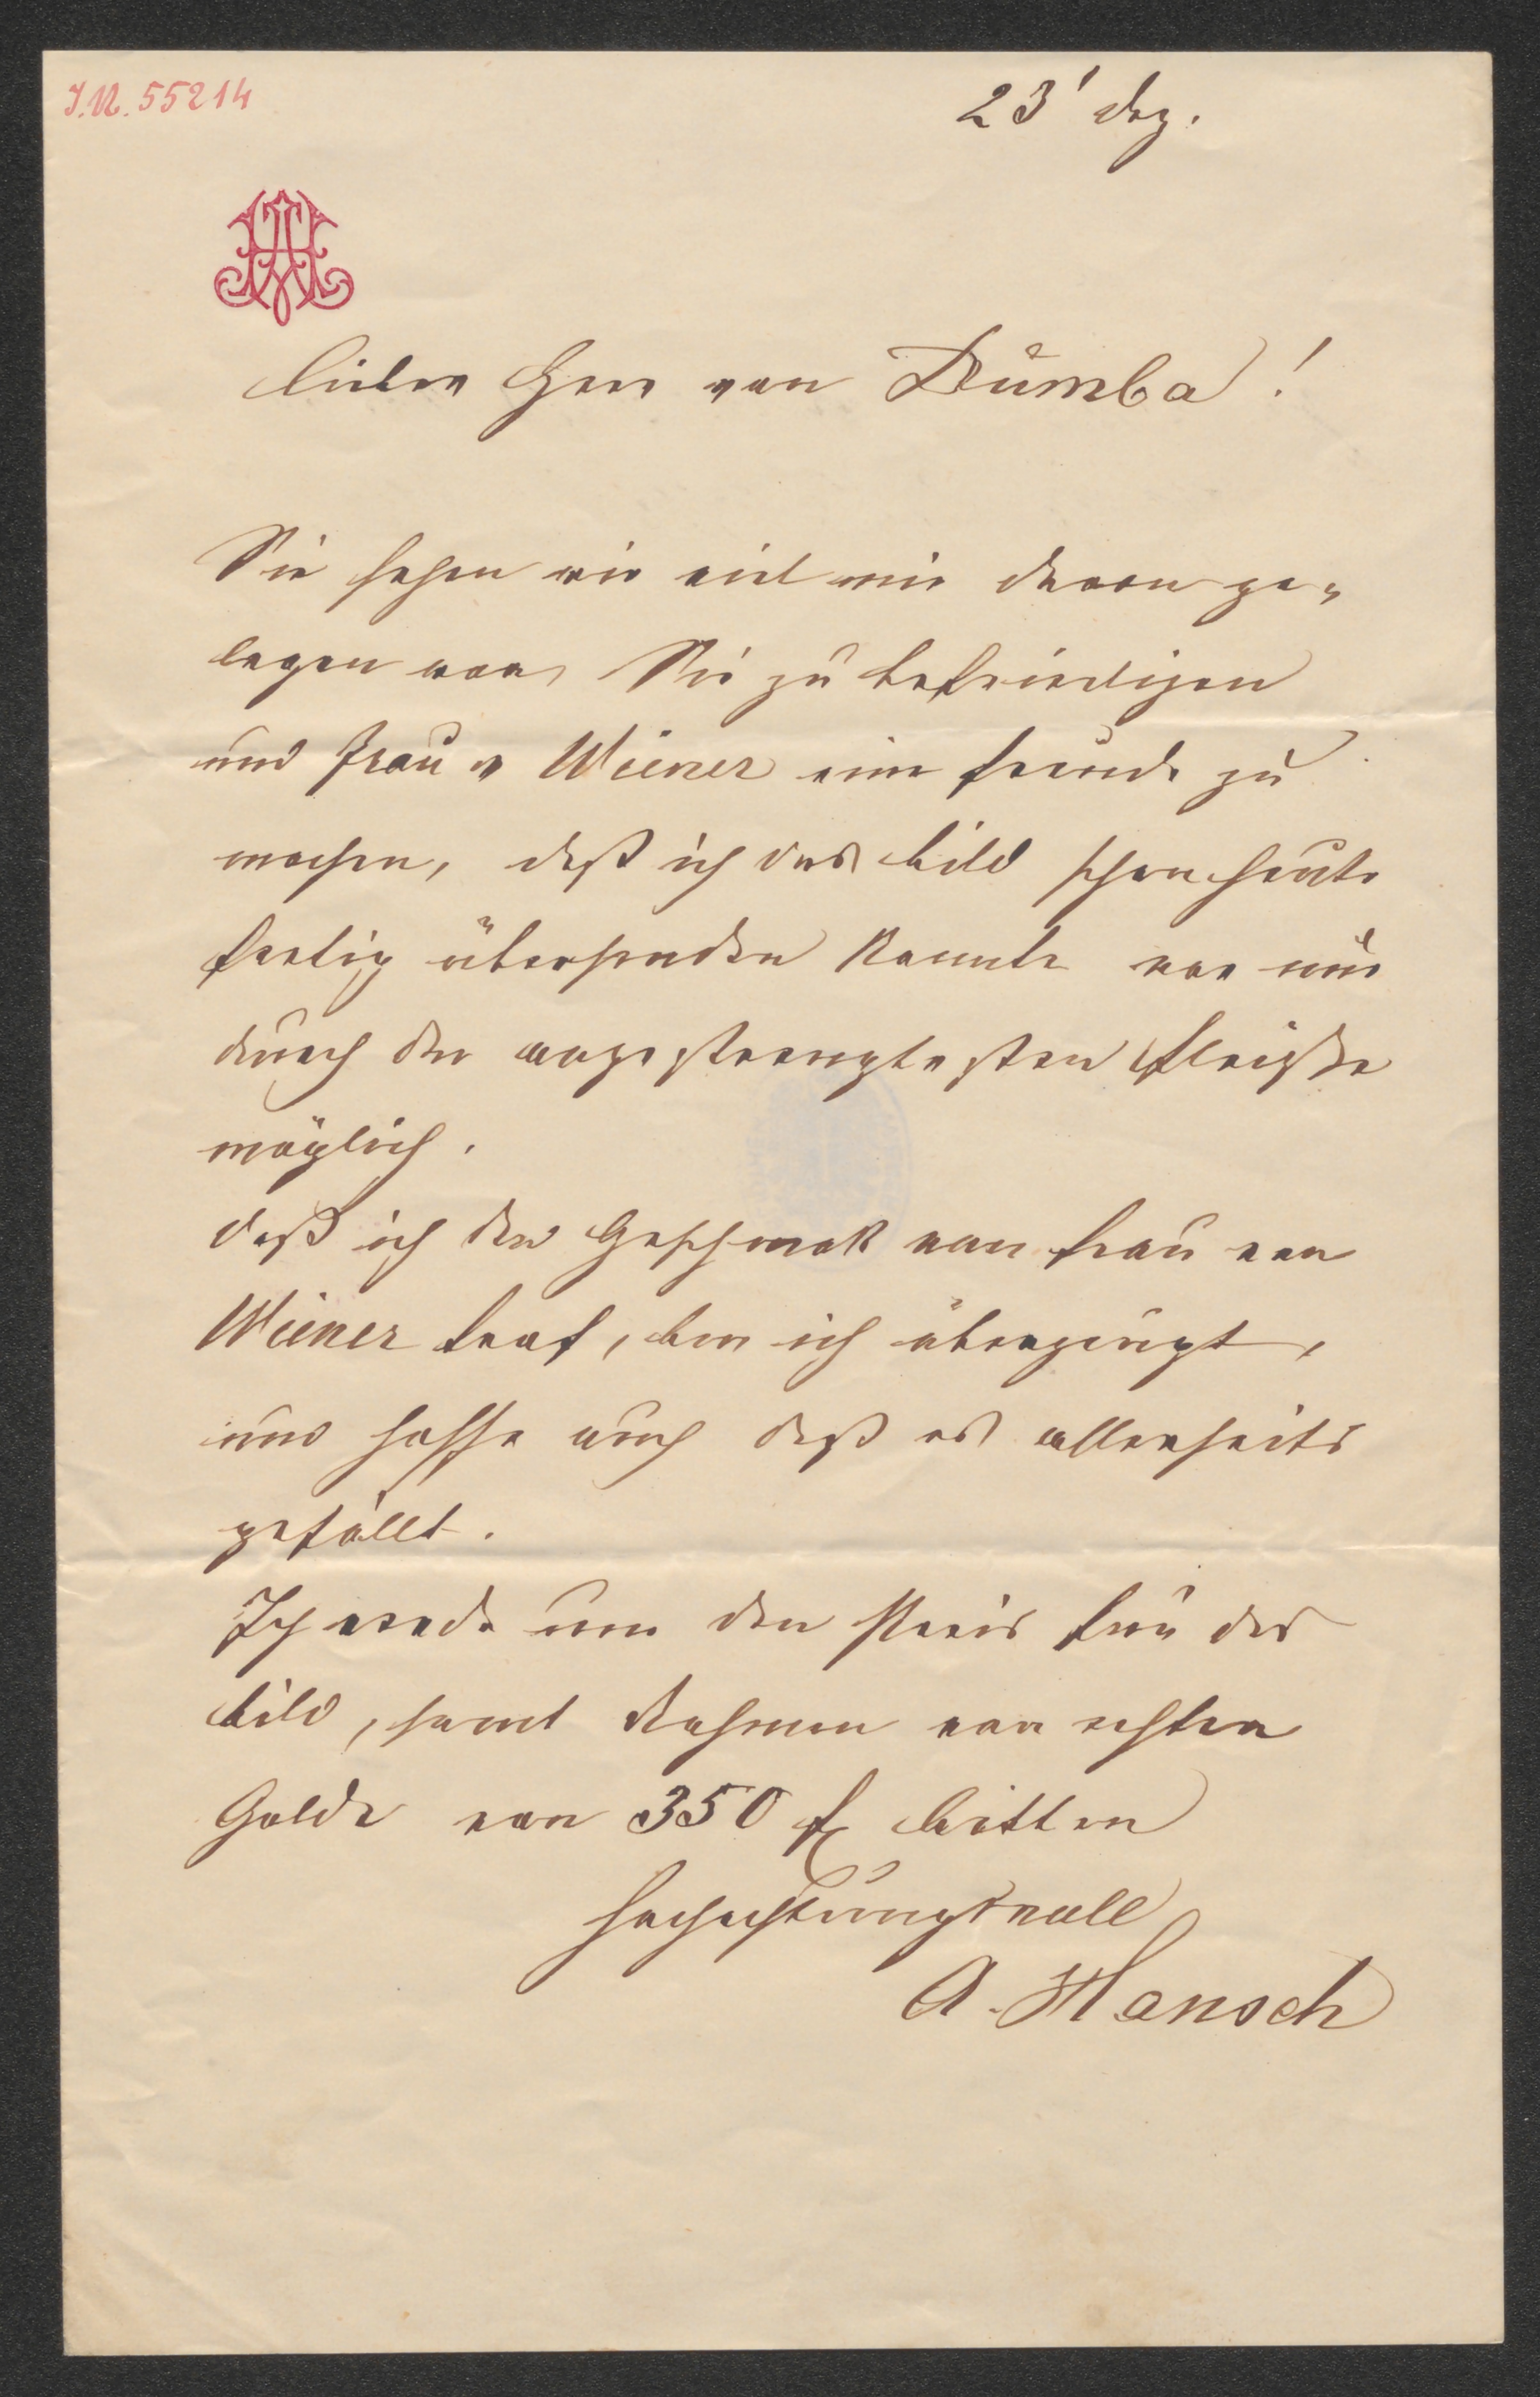 J.N. 55214
23' Dez.
Lieber Herr von Dumba!
Sie sehen wie viel mir daran ge-
legen war, Sie zu befriedigen
und Frau v Wiener eine Freude zu
machen, daß ich das Bild schon heute
fertig übersenden konnte war nur
durch den angestrengtesten Fleiße
möglich.
daß ich den Geschmak von Frau von
Wiener traf, bin ich überzeugt,
und hoffe auch daß es allerseits
gefällt.
Ich werde um den Preis für das
Bild, samt Rahmen von echten
Golde von 350 f bitten
Hochachtungsvoll
A. Hansch